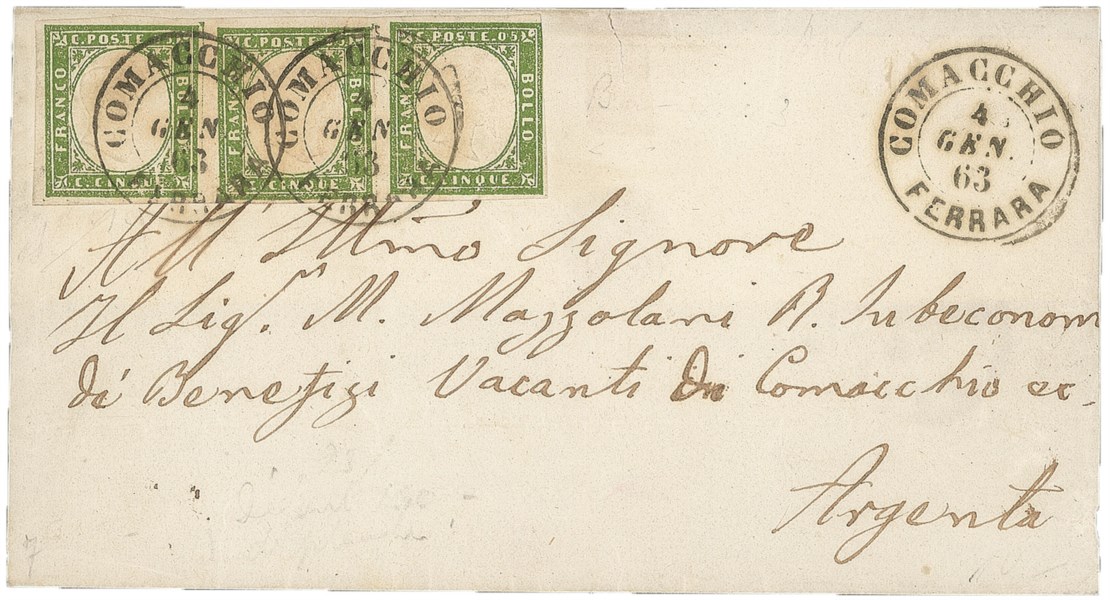 C. POSTE
FRANCO
BOLLO
C. CINQUE
C. POSTE
FRANCO
C. CINQUE
C. POSTE 05
FRANCO
BOLLO
C. CINQUE
COMACCHIO
4
GEN.
63
FERRARA
COMACCHIO
4
GEN.
63
FERRARA
COMACCHIO
4
GEN.
63
FERRARA
All' Illmo Signore
Il Sig.r M. Mazzolani R. Subeconom
di Benefizi Vacanti Di Comacchio ec
Argenta